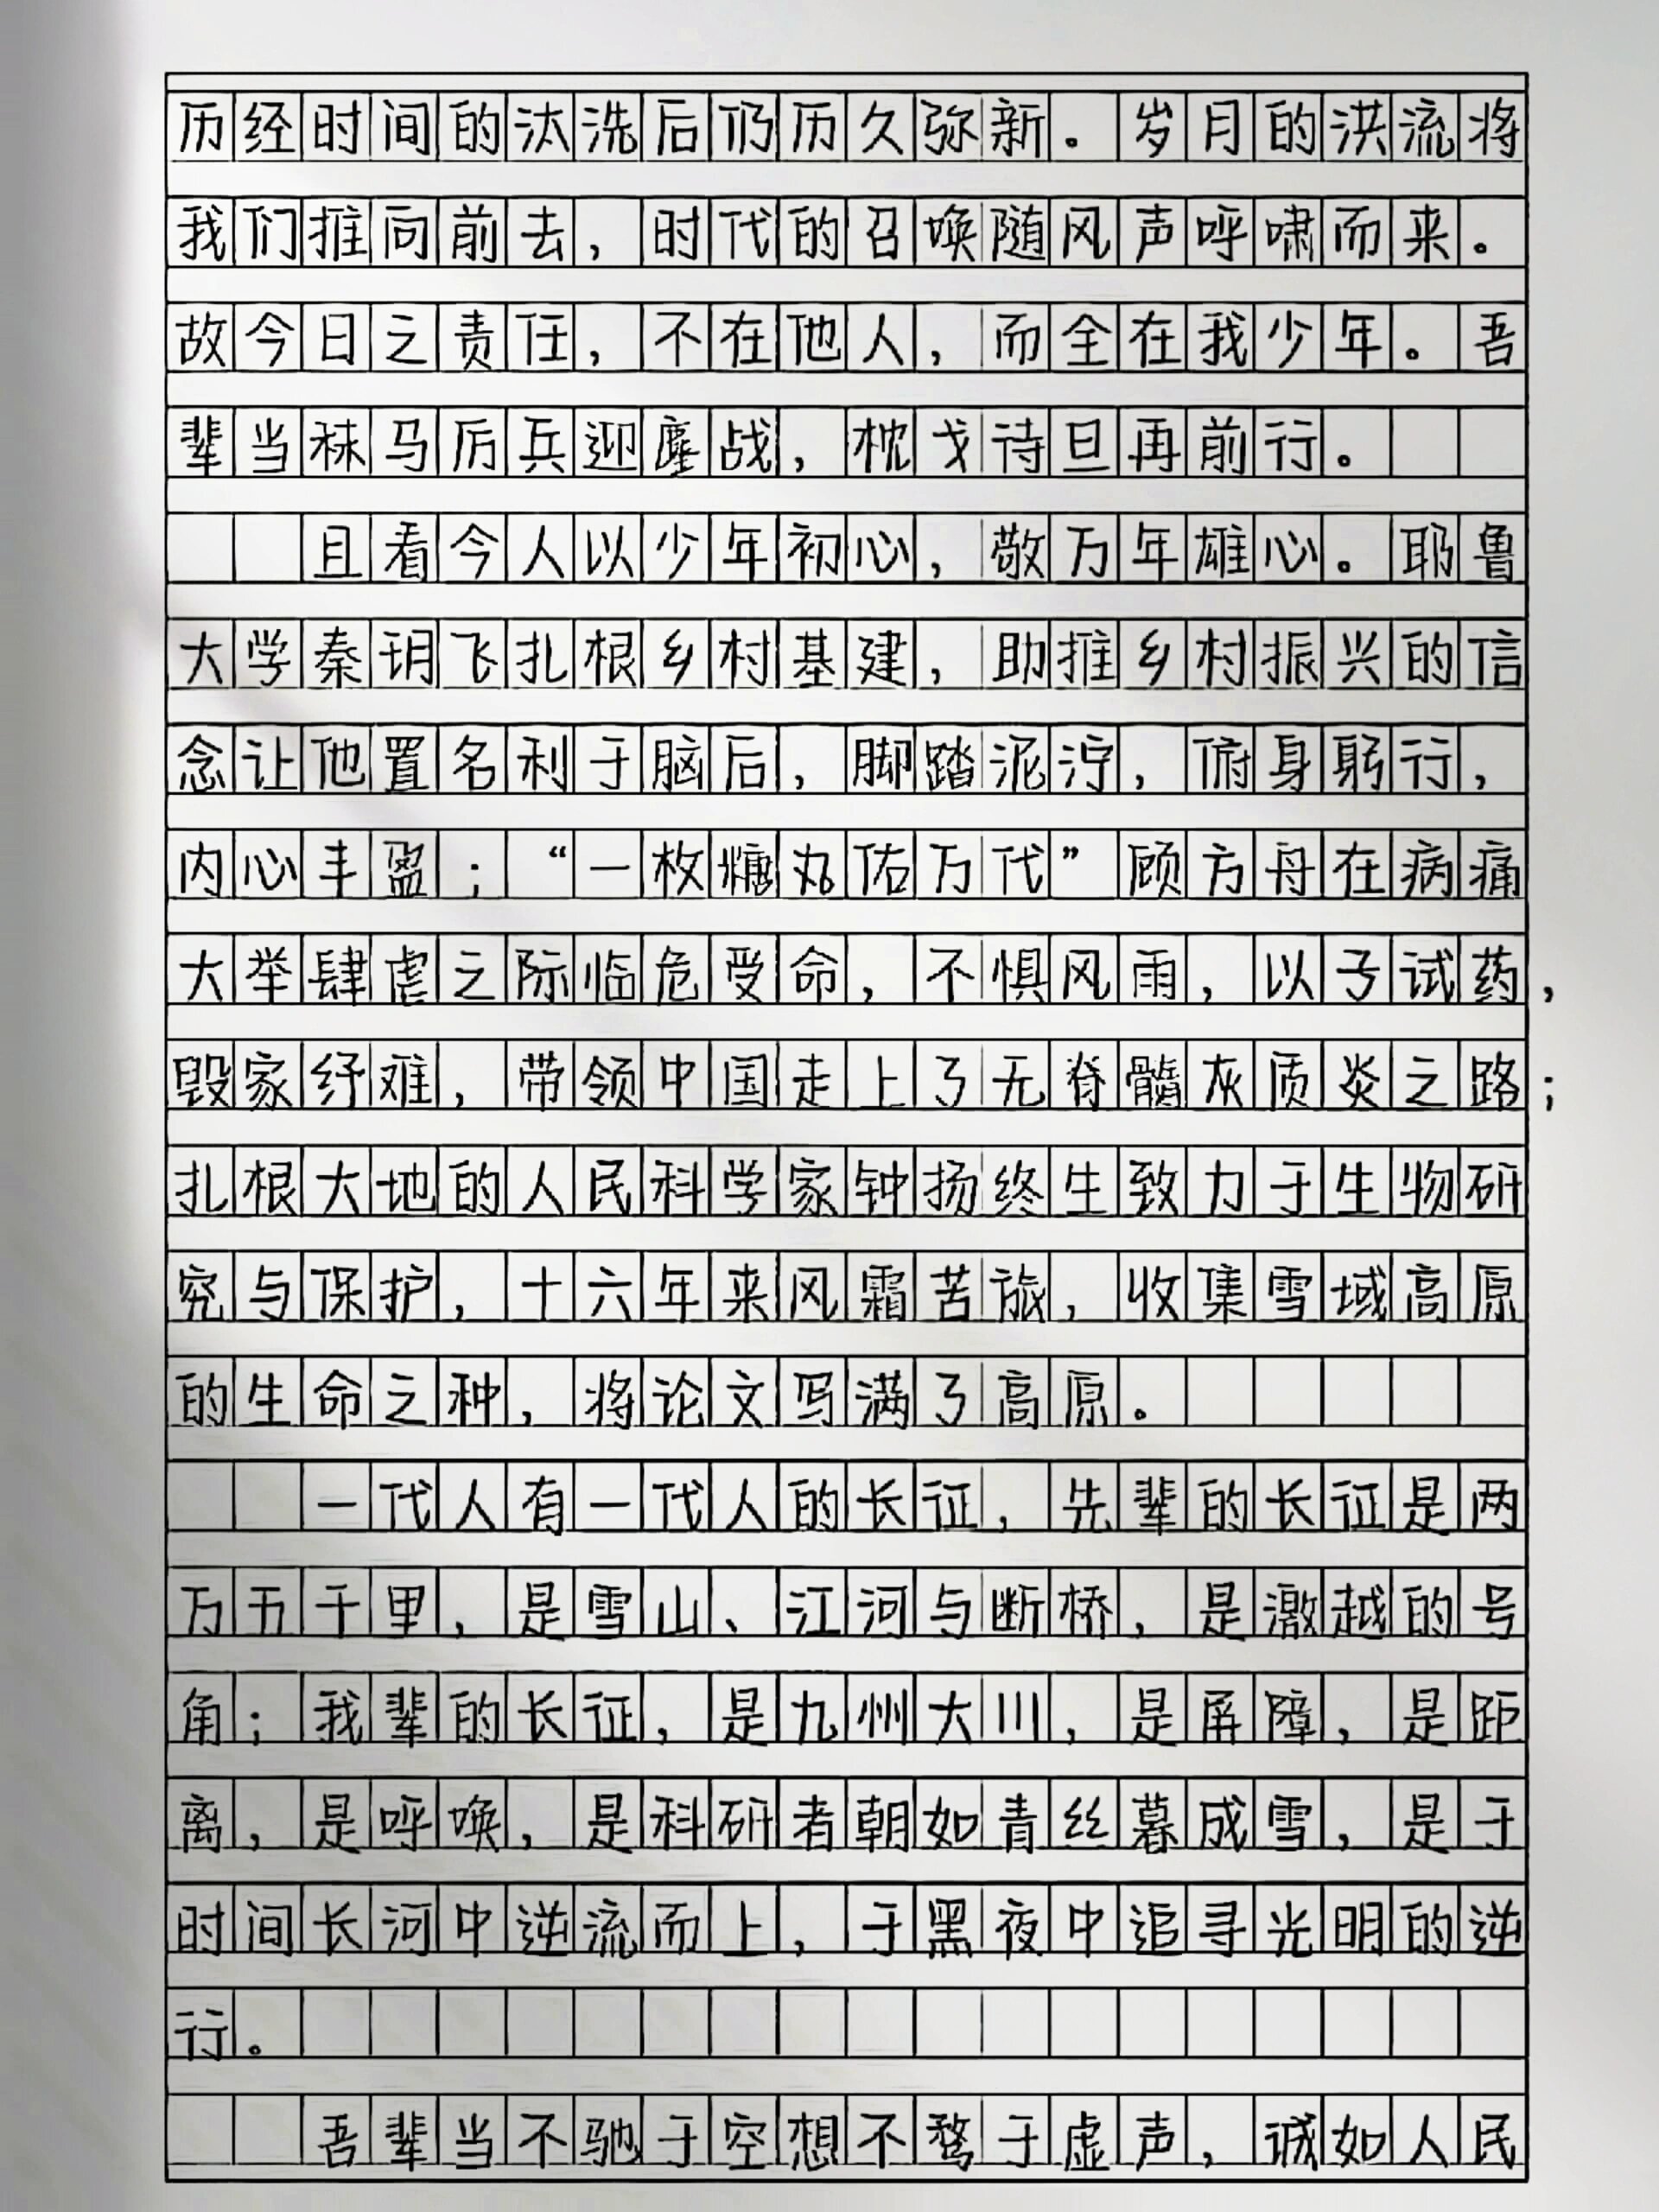 历经时间的汰洗后仍历久弥新。岁月的洪流将
我们推向前去，时代的召唤随风声呼啸而来。
故今日之责任，不在他人，而全在我少年。吾
辈当秣马厉兵迎鏖战，枕戈待旦再前行。
且看今人以少年初心，敬万年雄心。耶鲁
大学秦玥飞扎根乡村基建，助推乡村振兴的信
念让他置名利于脑后，脚踏泥泞，俯身躬行，
内心丰盈；“一枚糖丸佑万代”顾方舟在病痛
大举肆虐之际临危受命，不惧风雨，以子试药，
毁家纾难，带领中国走上了无脊髓灰质炎之路；
扎根大地的人民科学家钟扬终生致力于生物研
究与保护，十六年来风霜苦旅，收集雪域高原
的生命之种，将论文写满了高原。
一代人有一代人的长征，先辈的长征是两
万五千里，是雪山、江河与断桥，是激越的号
角；我辈的长征，是九州大川，是屏障，是距
离，是呼唤，是科研者朝如青丝暮成雪，是于
时间长河中逆流而上，于黑夜中追寻光明的逆
行。
吾辈当不驰于空想不骛于虚声，诚如人民